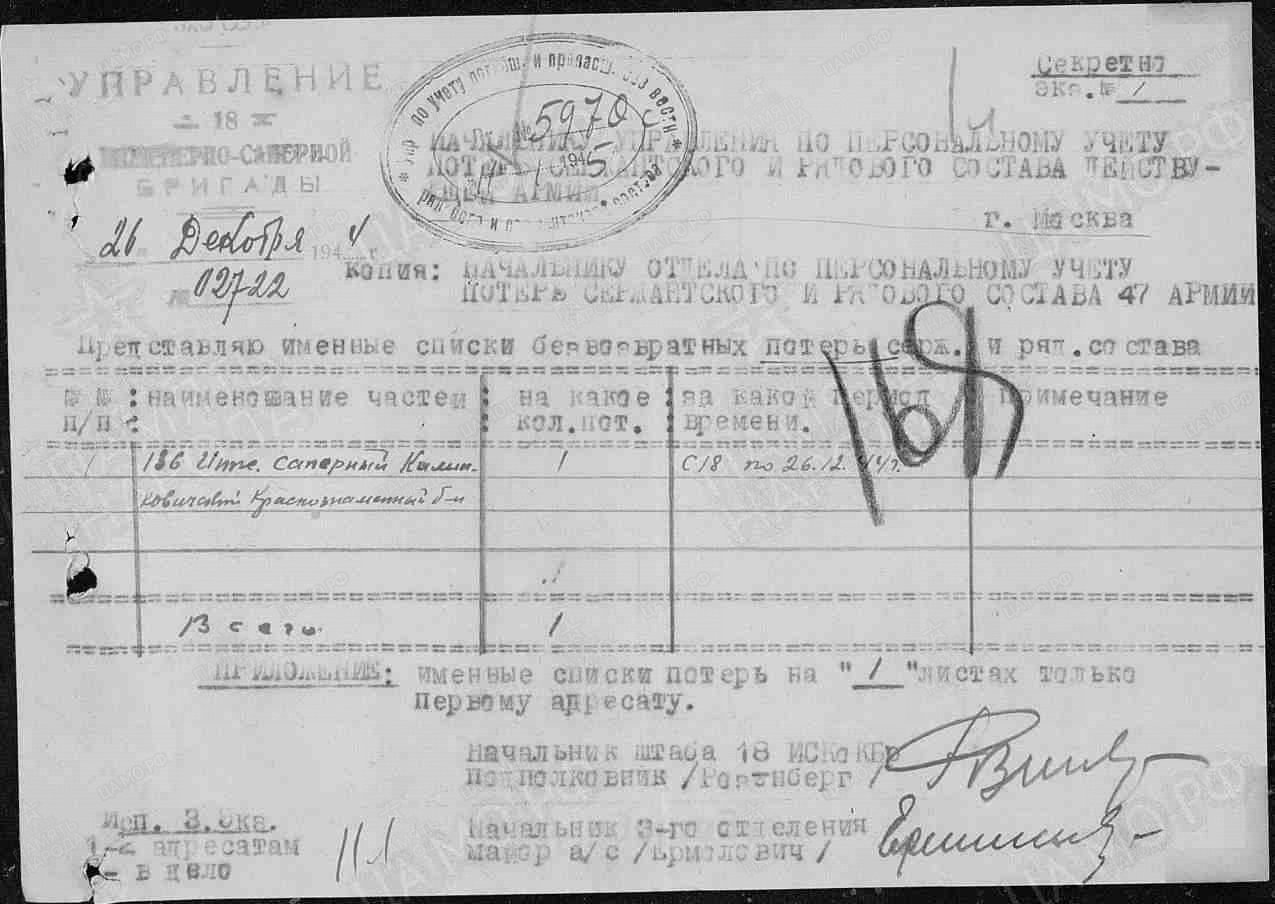 Секретно
Экз.№ 1
УПРАВЛЕНИЕ
18
ИНЖЕНЕРНО-САПЕРНОЙ
БРИГАДЫ
26 Декабря 1944 г
№ 02722
Упр. по учету погибш. и пропавш. без вести
Вх. № 5970
1945
рядового и сержантского состава
НАЧАЛЬНИКУ УПРАВЛЕНИЯ ПО ПЕРСОНАЛЬНОМУ УЧЕТУ
ПОТЕРЬ СЕРЖАНТСКОГО И РЯДОВОГО СОСТАВА ДЕЙСТВУ-
ЩЕЙ АРМИИ
г. Москва
Копия: НАЧАЛЬНИКУ ОТДЕЛА ПО ПЕРСОНАЛЬНОМУ УЧЕТУ
ПОТЕРЬ СЕРЖАНТСКОГО И РЯДОВОГО СОСТАВА 47 АРМИИ
Представляю именные списки безвозвратных потерь серж. и ряд.состава
№ № : наименование частей : на какое : за какой период : Примечание
п/п : : кол.пот. : времени.
1 186 Инж. саперный Калин- 1 С 18 по 26.12.44г.
ковичский Краснознаменный б-н
1
Всего 1
ПРИЛОЖЕНИЕ: именные списки потерь на "1" листах только
Первому адресату.
Начальник штаба 18 ИСКоКБр
Подполковник /Роатнберг /
Начальник 3-го отделения
майор а/с /Ермолович/
Исп. 3.Экз.
1-2 адресатам
- в дело